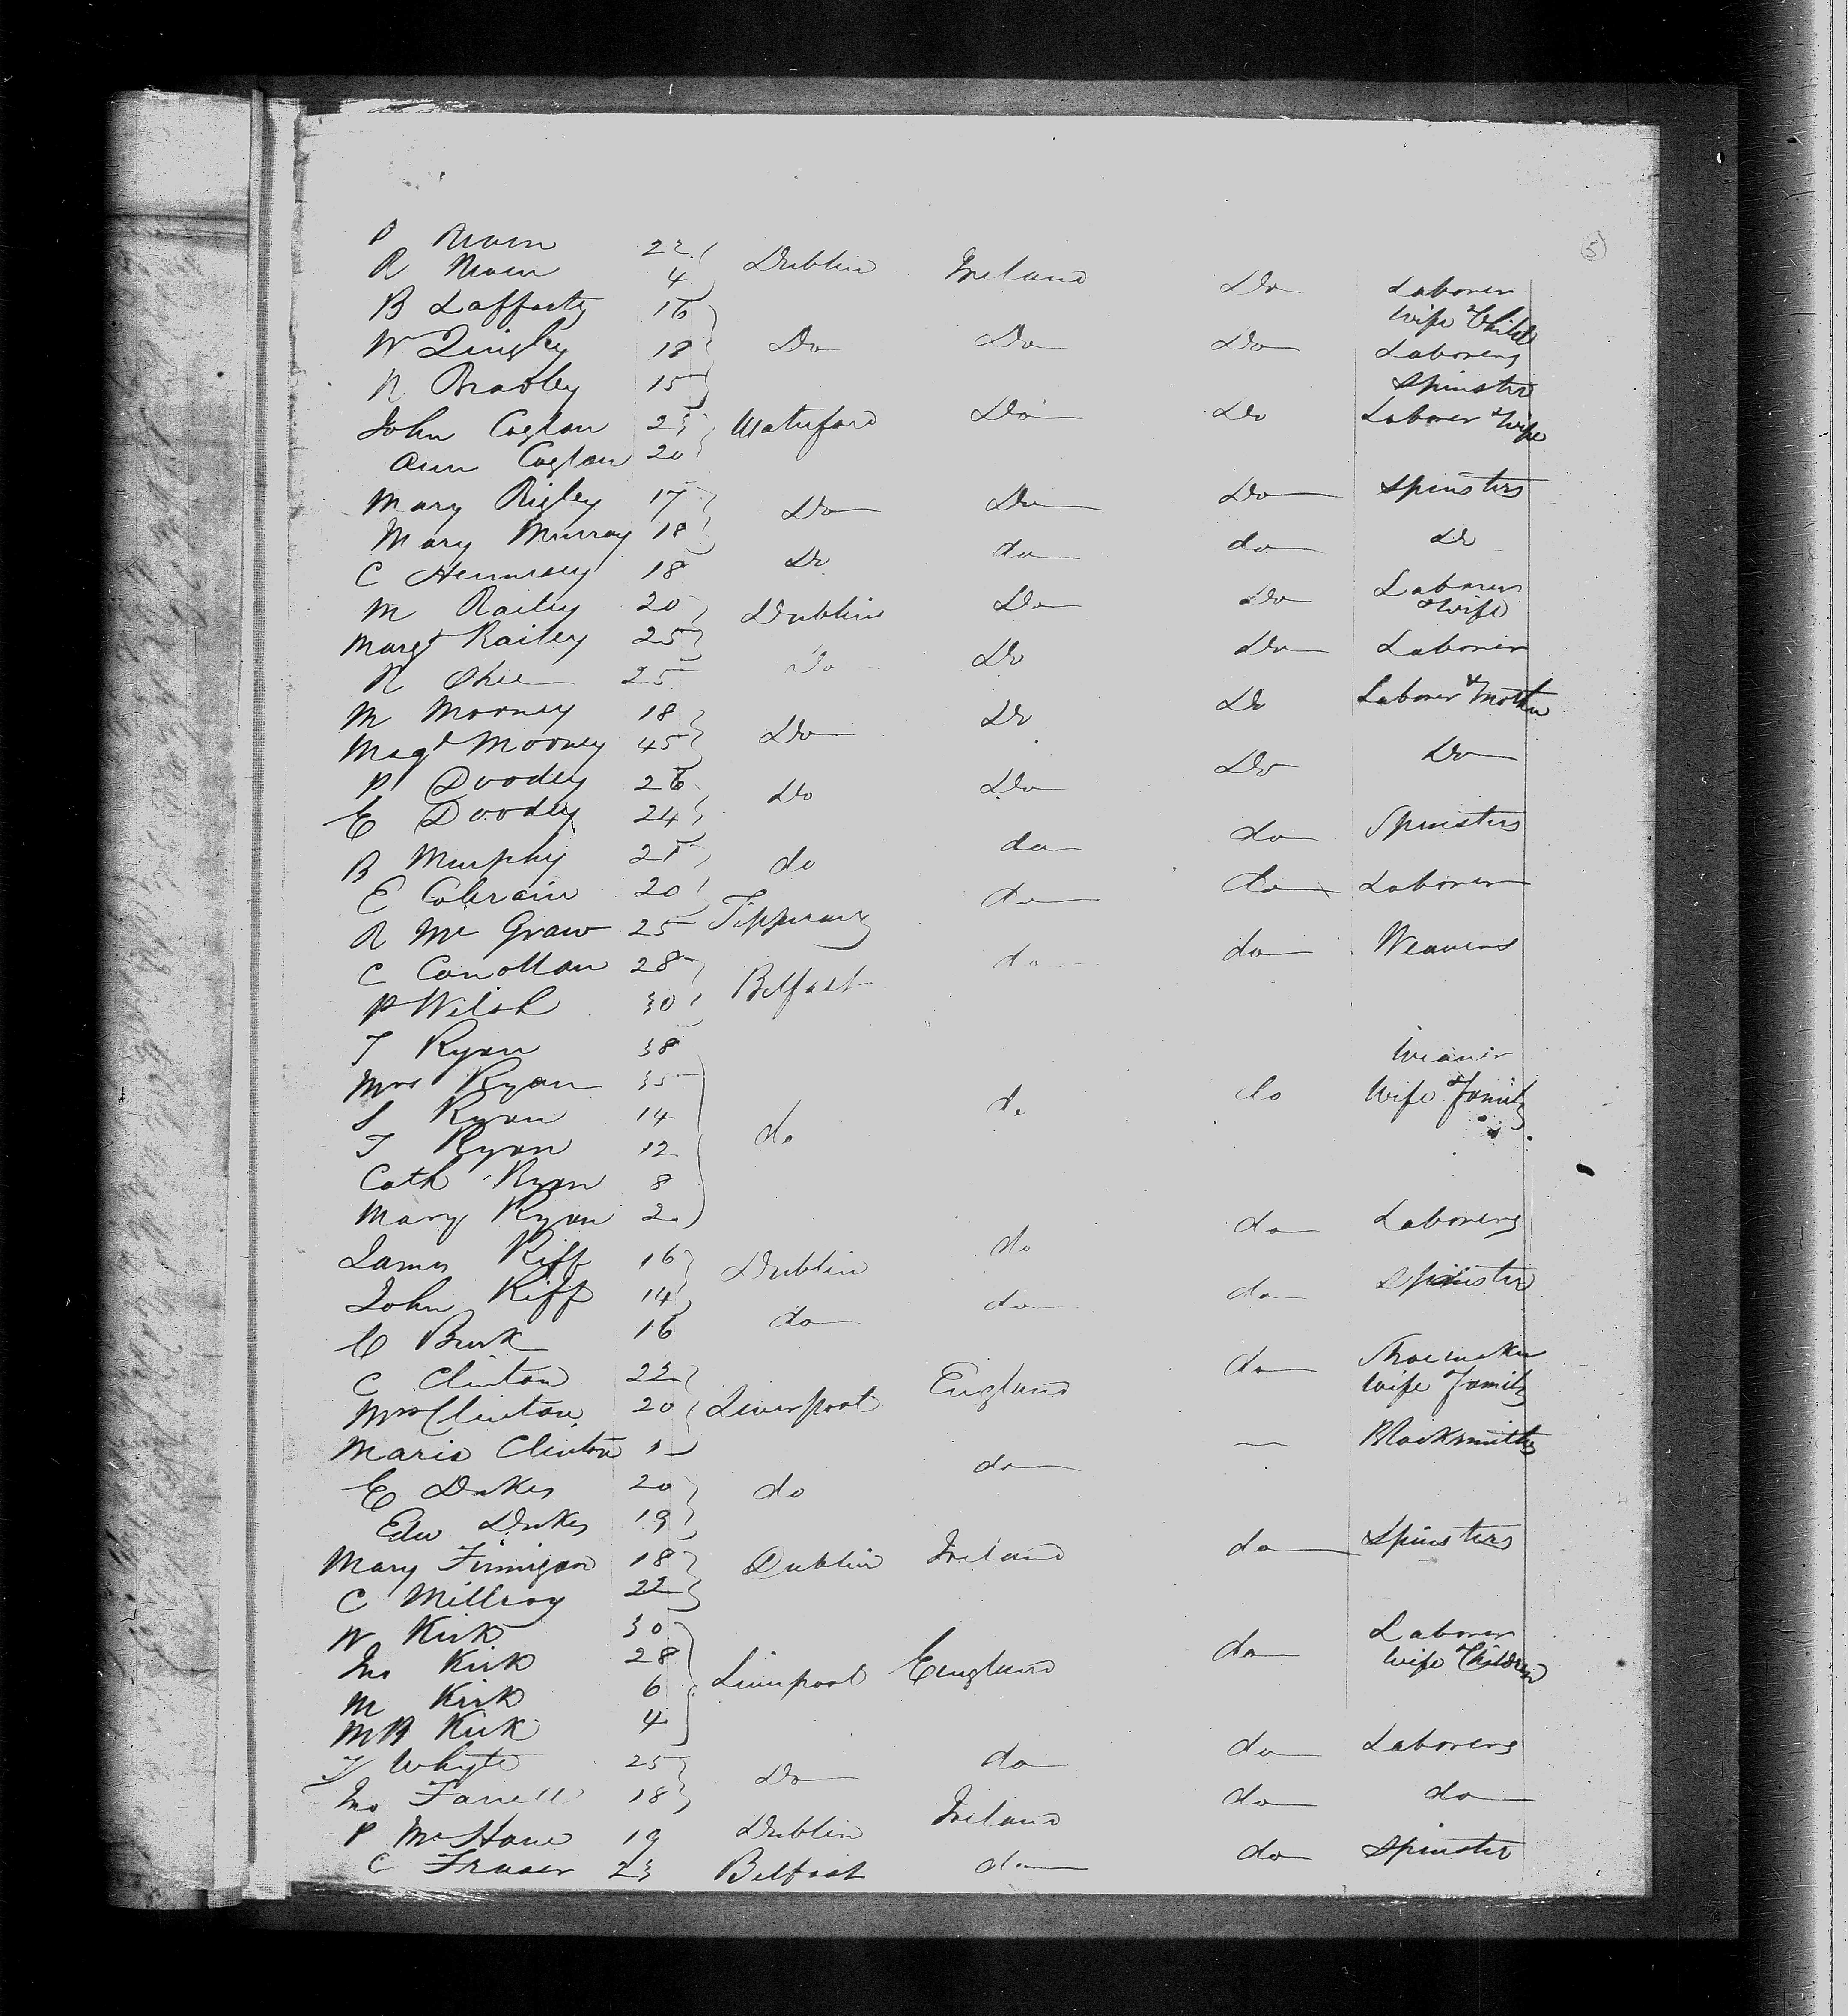 5
P Moin 22 Dublin Ireland Do Laborer
R Moin 4 Wife & Child
B Lafferty 16 Do Do Do Laborers
W Quigley 18
R Bradley 15 Spinster
John Coglan 23 Waterford Do Do Laborer & Wife
Ann Coglan 20
Mary Rigley 17 Do Do Do Spinsters
Mary Murray 18
C Hennesey 18 Do do do Do
M Railey 20 Dublin Do Do Laborer
Margt Railey 25 & Wife
R 25 Do Do Do Laborer
M Mooney 18 Do Do Do Laborer & Mother
Magt Mooney 45
P Doodey 26 Do Do Do Do
E Doodey 24
B Murphy 21 do da do Spinsters
E Colerain 20
R Mc Graw 25 Tipperary do do Laborer
C Conollan 28 Belfast do do Weavers
P Welsh 30
T Ryan 38 Weaver
Mrs Ryan 35 do do do Wife & family
S Ryan 14
T Ryan 12
Cath Ryan 8
Mary Ryan 2
James Kiff 16 Dublin do do Laborers
John Kiff 14
C Burk 16 do do do Spinster
C Clinton 22 Liverpool England do Shoemaker
Mrs Clinton 20 Wife & family
Maria Clinton 1
E Dukes 20 do do — Blacksmiths
Edw Dukes 19
Mary Finnigan 18 Dublin Ireland do Spinsters
C Millroy 22
W Kirk 30 Liverpool England do Laborer
Mrs Kirk 28 Wife & Children
M Kirk 6
MB Kirk 4
T Whyte 25 Do do do Laborers
Jno Farrell 18
P McHane 19 Dublin Ireland do do
C Fraser 23 Belfast do do Spinster